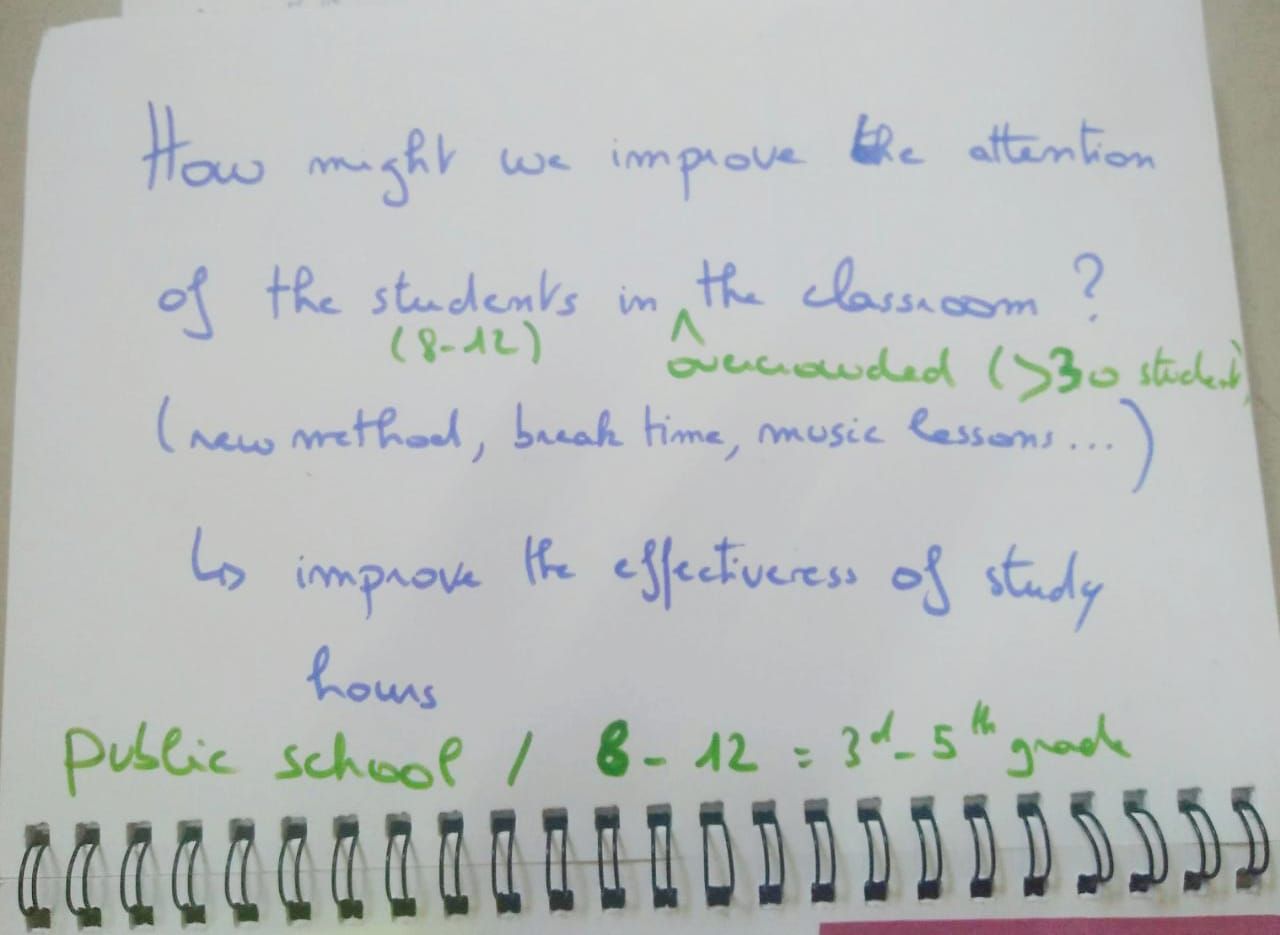 How might we improve the attention
of the students in the classroom ?
(8-12) ^ overcrowded (>30 student)
(new method, break time, music lessons...)
↳ improve the effectiveness of study
hours
public school / 8 - 12 = 3d - 5th grade